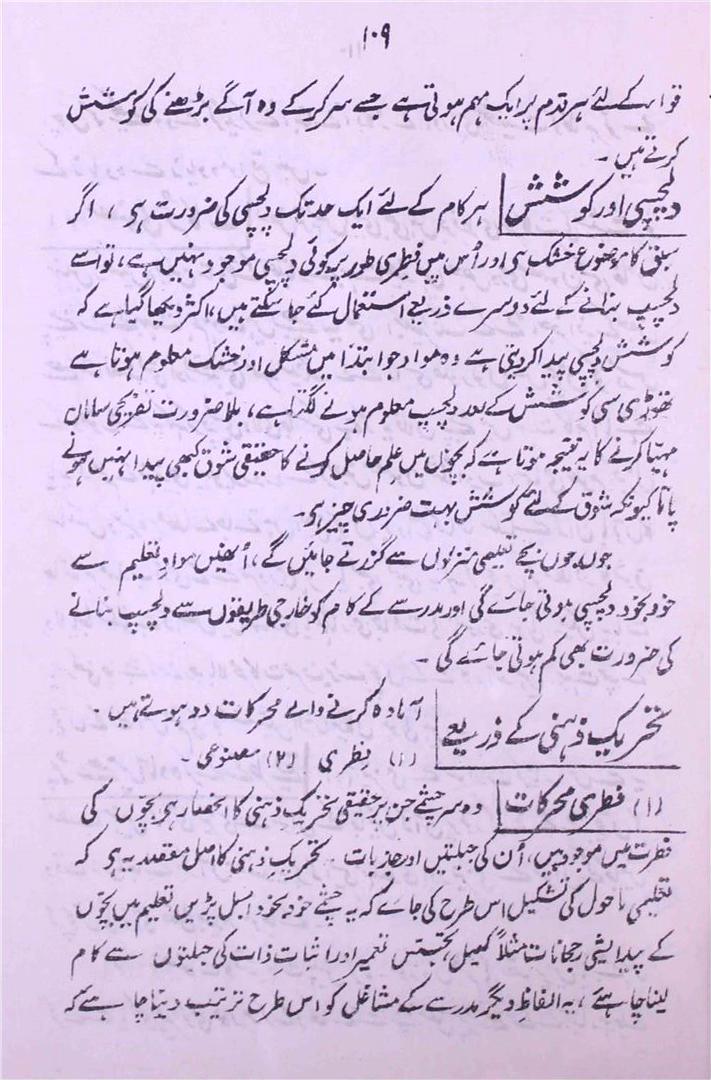 ۱۰۹
قواد کے لئے ہر قدم پر ایک مہم ہوتی ہے جسے سر کر کے وہ آگے بڑھنے کی کوشش
کرتے ہیں ۔
دلچسپی اور کوشش ہر کام کے لئے ایک حد تک دلچسپی کی ضرورت ہی ، اگر
سبق کا موضوع خشک ہی اور اُس میں فطری طور پر کوئی دلچسپی موجود نہیں ہے ، تو اسے
دلچسپ بنانے کے لئے دوسرے ذریعے استعمال کئے جا سکتے ہیں ، اکثر دیکھا گیا ہے کہ
کوشش دلچسپی پیدا کر دیتی ہے وہ مواد جو ابتدا میں مشکل اور خشک معلوم ہوتا ہے
تھوڑی سی کوشش کے بعد دلچسپ معلوم ہونے لگتا ہے ، بلا ضرورت تفریحی سامان
مہیّا کرنے کا یہ نتیجہ ہوتا ہے کہ بچّوں میں علم حاصل کرنے کا حقیقی شوق کبھی پیدا نہیں ہونے
پاتا کیونکہ شوق کے لئے کوشش بہت ضروری چیز ہی ۔
جوں جوں بچے تعلیمی منزلوں سے گزرتے جائیں گے ، اُنھیں موادِ تعلیم سے
خود بخود دلچسپی ہوتی جائے گی اور مدرسے کے کام کو خارجی طریقوں سے دلچسپ بنانے
کی ضرورت بھی کم ہوتی جائے گی ۔
تحریکِ ذہنی کے ذریعے آمادہ کرنے والے محرکات دو ہوتے ہیں ۔
(۱) فطری (۲) مصنوعی ۔
(۱) فطری محرکات وہ سر چشمے جن پر حقیقی تحریکِ ذہنی کا انحصار ہی بچّوں کی
فطرت میں موجود ہیں ، اُن کی جبلتیں اور جذبات ۔ تحریکِ ذہنی کا اصلی مقصد یہ ہی کہ
تعلیمی ماحول کی تشکیل اس طرح کی جائے کہ یہ چشمے خود بخود ابل پڑیں تعلیم میں بچّوں
کے پیدایشی رجحانات مثلاً کھیل ، تجسّس تعمیر اور اثباتِ ذات کی جبلتوں سے کام
لینا چاہئے ، بہ الفاظِ دیگر مدرسے کے مشاغل کو اس طرح ترتیب دینا چاہئے کہ